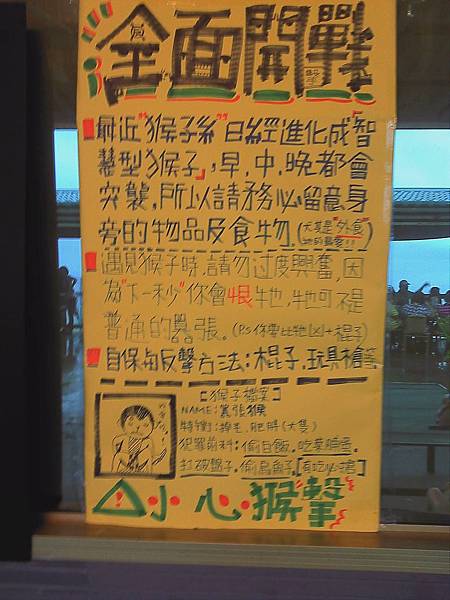 全面開戰
最近"猴子系"日經進化成"智
慧型猴子",早.中.晚都會
突襲.所以請務必留意身
旁的物品及食物.(尤其是"外食"
遇見猴子時.請勿过度興奮,因
為"下一秒"你會恨牠.牠可不是
普通的囂張.(P.S 你要比牠凶+棍子)
自保与反擊方法:棍子.玩具槍等
【猴子檔案】
NAME:囂張猴
特徵:掉毛.肥胖(大隻)
犯罪前科:偷白飯.吃菜脯蛋.
打破盤子.偷鳥蛋子
小心.猴擊